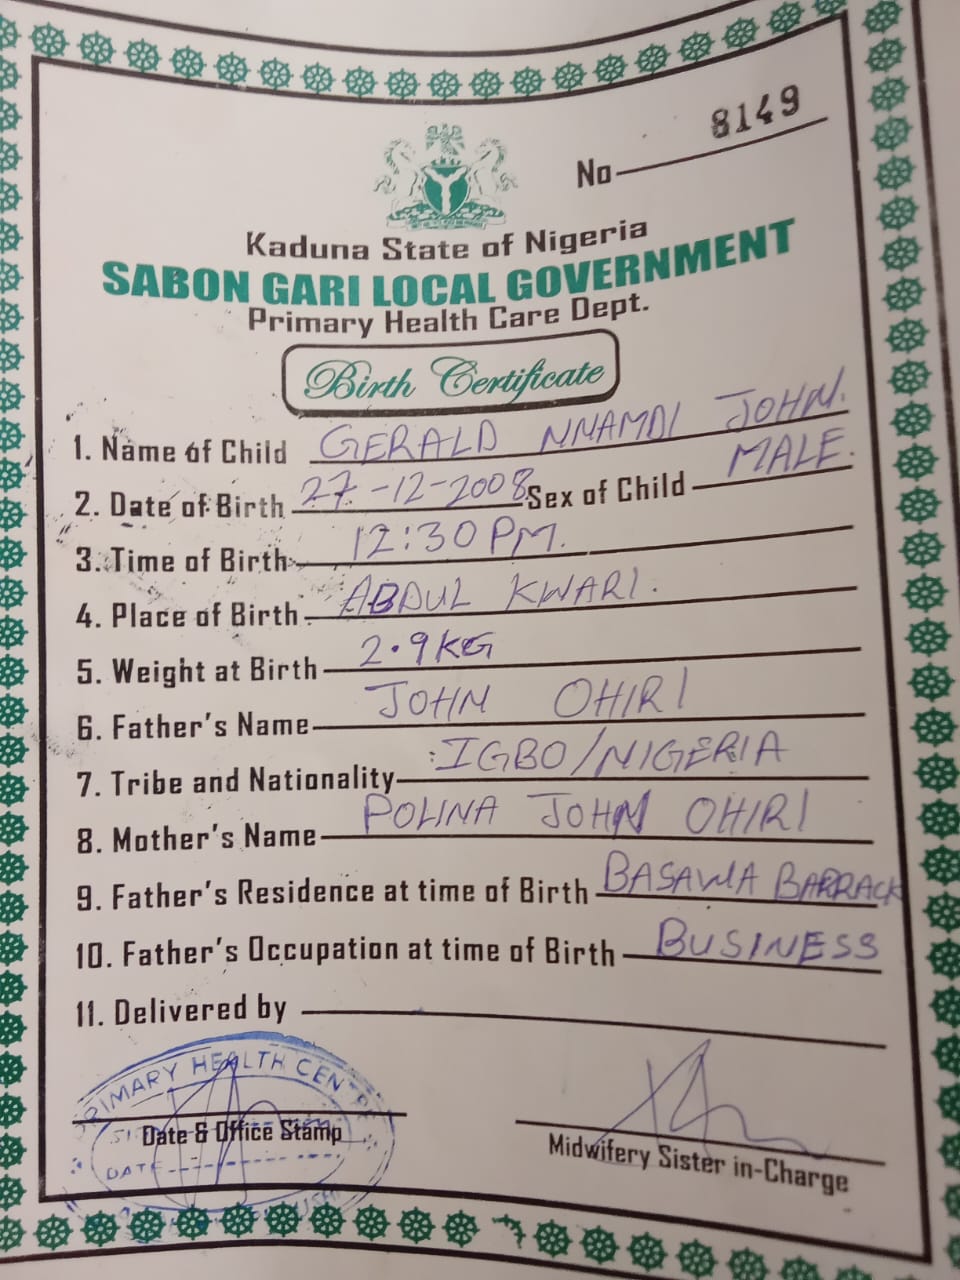 No 8149
Kaduna State of Nigeria
SABON GARI LOCAL GOVERNMENT
Primary Health Care Dept.
Birth Certificate
1. Name of Child GERALD NNAMDI JOHN.
2. Date of Birth 27-12-2008 Sex of Child MALE.
3. Time of Birth 12:30 PM.
4. Place of Birth ABDUL KWARI.
5. Weight at Birth 2.9KG
6. Father's Name JOHN OHIRI
7. Tribe and Nationality IGBO/NIGERIA
8. Mother's Name POLINA JOHN OHIRI
9. Father's Residence at time of Birth BASAWA BARRACK
10. Father's Occupation at time of Birth BUSINESS
11. Delivered by
PRIMARY HEALTH CENTRE
Date & Office Stamp
DATE
Midwifery Sister in-Charge